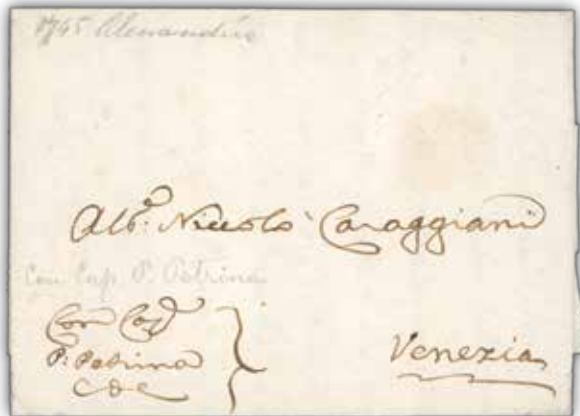 1745 Alexandria
Al S.r Niccolò Caraggiani
Con Cap P. Petrina
Con Cap
P. Petrina
Venezia